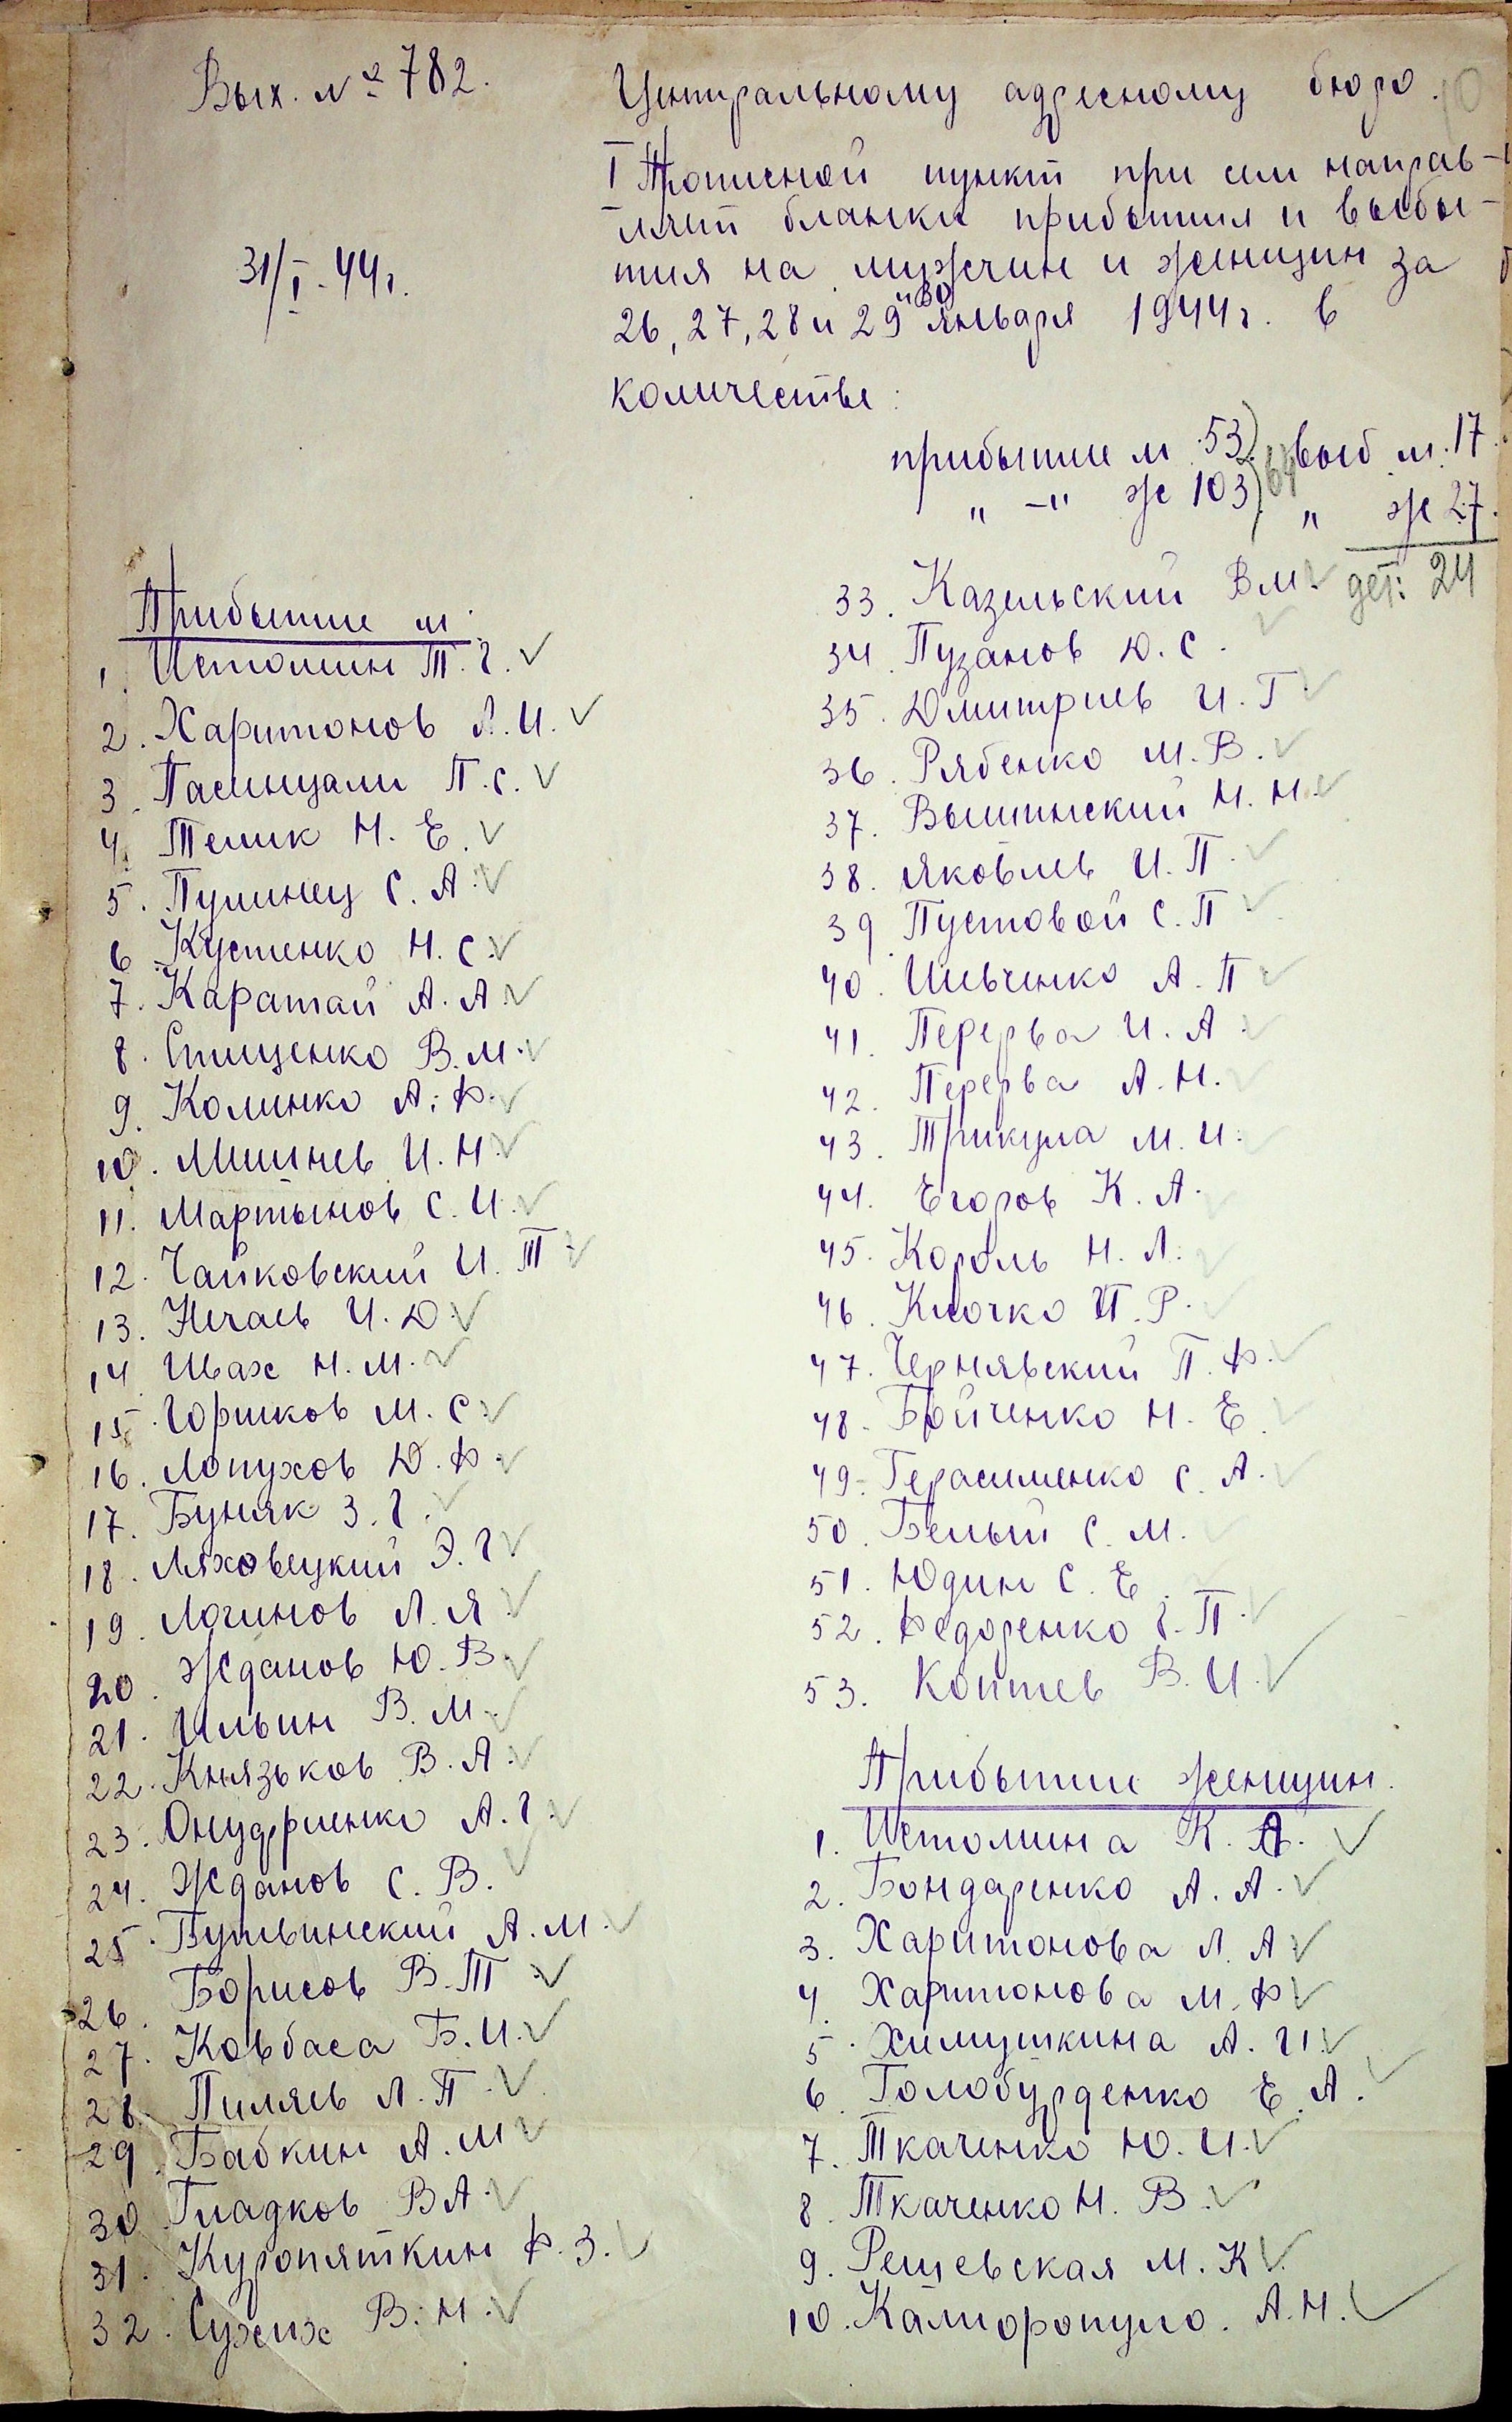 Вых. № 782.
31/I-44г.
Центральному адресному бюро.
I Прописной пункт при сем направ-
ляет бланки прибытия и выбы-
тия на мужчин и женщин за
26, 27, 28 и 29 и 30 января 1944г. в
количестве:
прибытие м 53 выб м. 17.
" -" ж 103 " ж 27.
дет: 24
Прибытие м.
1. Истомин Т. Г.
2. Харитонов Л. И.
3. Пасинцали П. С.
4. Телик Н. Е.
5. Пулинец С. А.
6. Кустенко Н. С.
7. Каратай А. А.
8. Стищенко В. М.
9. Колинко А. Ф.
10. Мишнев И. Н.
11. Мартынов С. И.
12. Чайковский И. Т.
13. Нечаев И. Д.
14. Швах Н. М.
15. Горшков М. С.
16. Лопухов Д. Ф.
17. Буняк З. Г.
18. Ляховецкий Э. Г.
19. Логинов Л. Я.
20. Жданов Ю. В.
21. Ильин В. М.
22. Князьков В. А.
23. Онуфриенко А. Г.
24. Жданов С. В.
25. Путвинский А. М.
26. Борисов В. Т.
27. Ковбаса Б. И.
28. Пиляев Л. П.
29. Бабкин А. М.
30. Гладков В А.
31. Куропяткин Ф. З.
32. Сухих В. Н.
33. Казельский В М.
34. Пузанов Д. С.
35. Дмитриев И. Г.
36. Рябенко М. В.
37. Вышинский Н. Н.
38. Яковлев И. П.
39. Пустовой С. П.
40. Ильченко А. П.
41. Перерва И. А.
42. Перерва А. Н.
43. Трикула М. И.
44. Егоров К. А.
45. Король Н. Л.
46. Клочко П. Р.
47. Чернявский П. Ф.
48. Бойченко Н. Е.
49. Герасименко С. А.
50. Белый С. М.
51. Юдин С. Е.
52. Федоренко Г. П.
53. Коптев В. И.
Прибытие женщин.
1. Истомина К. А.
2. Бондаренко А. А.
3. Харитонова Л. А.
4. Харитонова М. Ф.
5. Химушкина А. И.
6. Голобурденко Е. А.
7. Ткаченко Ю. И.
8. Ткаченко Н. В.
9. Решевская М. К.
10. Калиоропуло. А. Н.